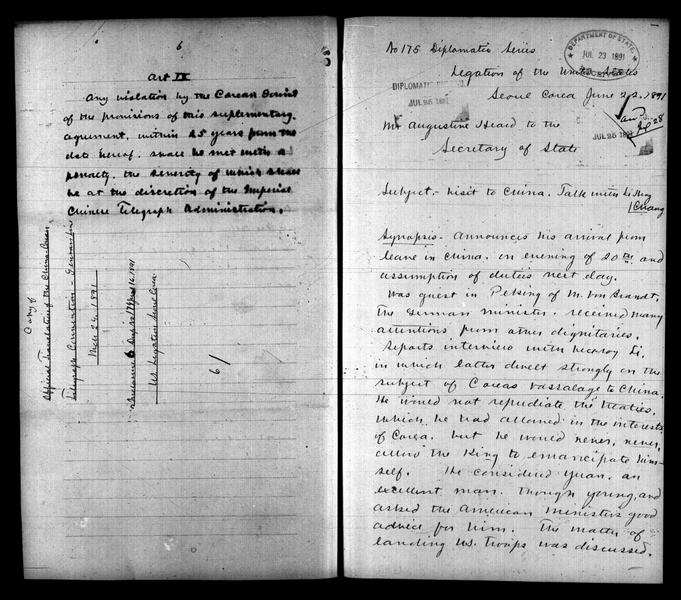 6
Art IX
Any violation by the Corean Govmt
of the provisions of this suplementary
agreement, within 25 years from the
date hereof, shall be met with a
penalty, the severity of which shall
be at the discretion of the Imperial
Chinese Telegraph Administration.
Copy of
Official translation of the China-Corean
Telegraph Convention -
Mch 24. 1891
Enclosure 6 Dispatch
US Legation Seoul Corea
6/
No 175 Diplomatic Series
DEPARTMENT OF STATE
JUL 23 1891
Legation of the United States
DIPLOMATIC
JUL 25 1891
Seoul Corea June 22. 1891
JUL 25 1891
Mr Augustine Heard to the
Secretary of State
Subject:- Visit to China. Talk with Li Hung
Chang
Synopsis - Announces his arrival from
leave in China, on evening of 20th and
assumption of duties next day.
Was guest in Peking of M. von Brandt,
the German minister. received many
attentions from other dignitaries.
Reports interview with Viceroy Li.
in which latter dwelt strongly on the
subject of Coreas vassalage to China.
He would not repudiate the treaties,
which he had allowed in the interests
of Corea. but he would never, never,
allow the King to emancipate him-
self. He considered Yuan, an
excellent man. though young, and
asked the American ministers good
advice for him. The matter of
landing U.S. troops was discussed.